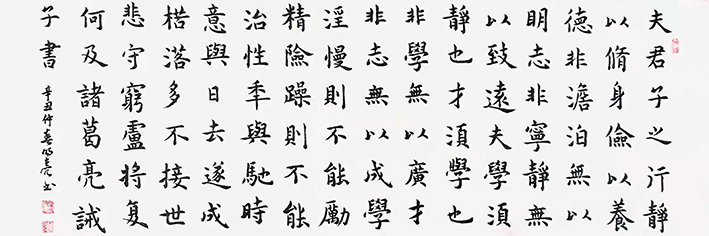 夫君子之行靜
以脩身儉以養
德非澹泊無以
明志非寧靜無
以致遠夫學須
靜也才須學也
非學無以廣才
非志無以成學
淫慢則不能勵
精險躁則不能
治性秊與馳時
意與日去遂成
楛落多不接世
悲守窮盧將复
何及諸葛亮誡
子書
辛丑仲春亮书